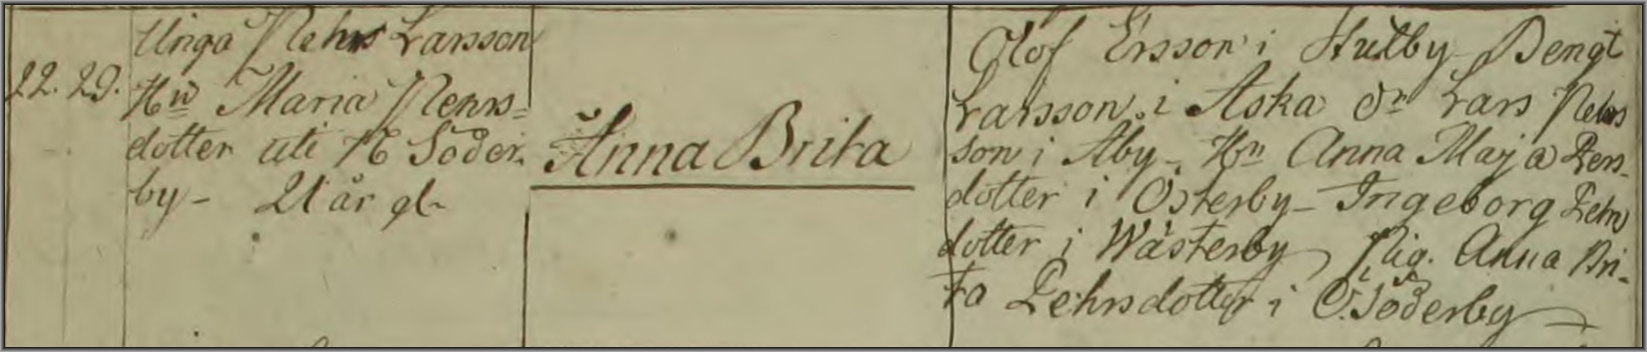 Unga Pehr Larsson
22. 29. Hu Maria Pehrs=
dotter uti N Söder=
by - 21 år gl.
Anna Brita
Olof Ersson i Hulby - Bengt
Larsson i Aska Dr Lars Pehrs
son i Åby - Hu Anna Maja Pers-
dotter i Österby - Ingeborg Pehrs
dotter i Wästerby Pig. Anna Bri-
ta Pehrsdotter i Ö. Söderby